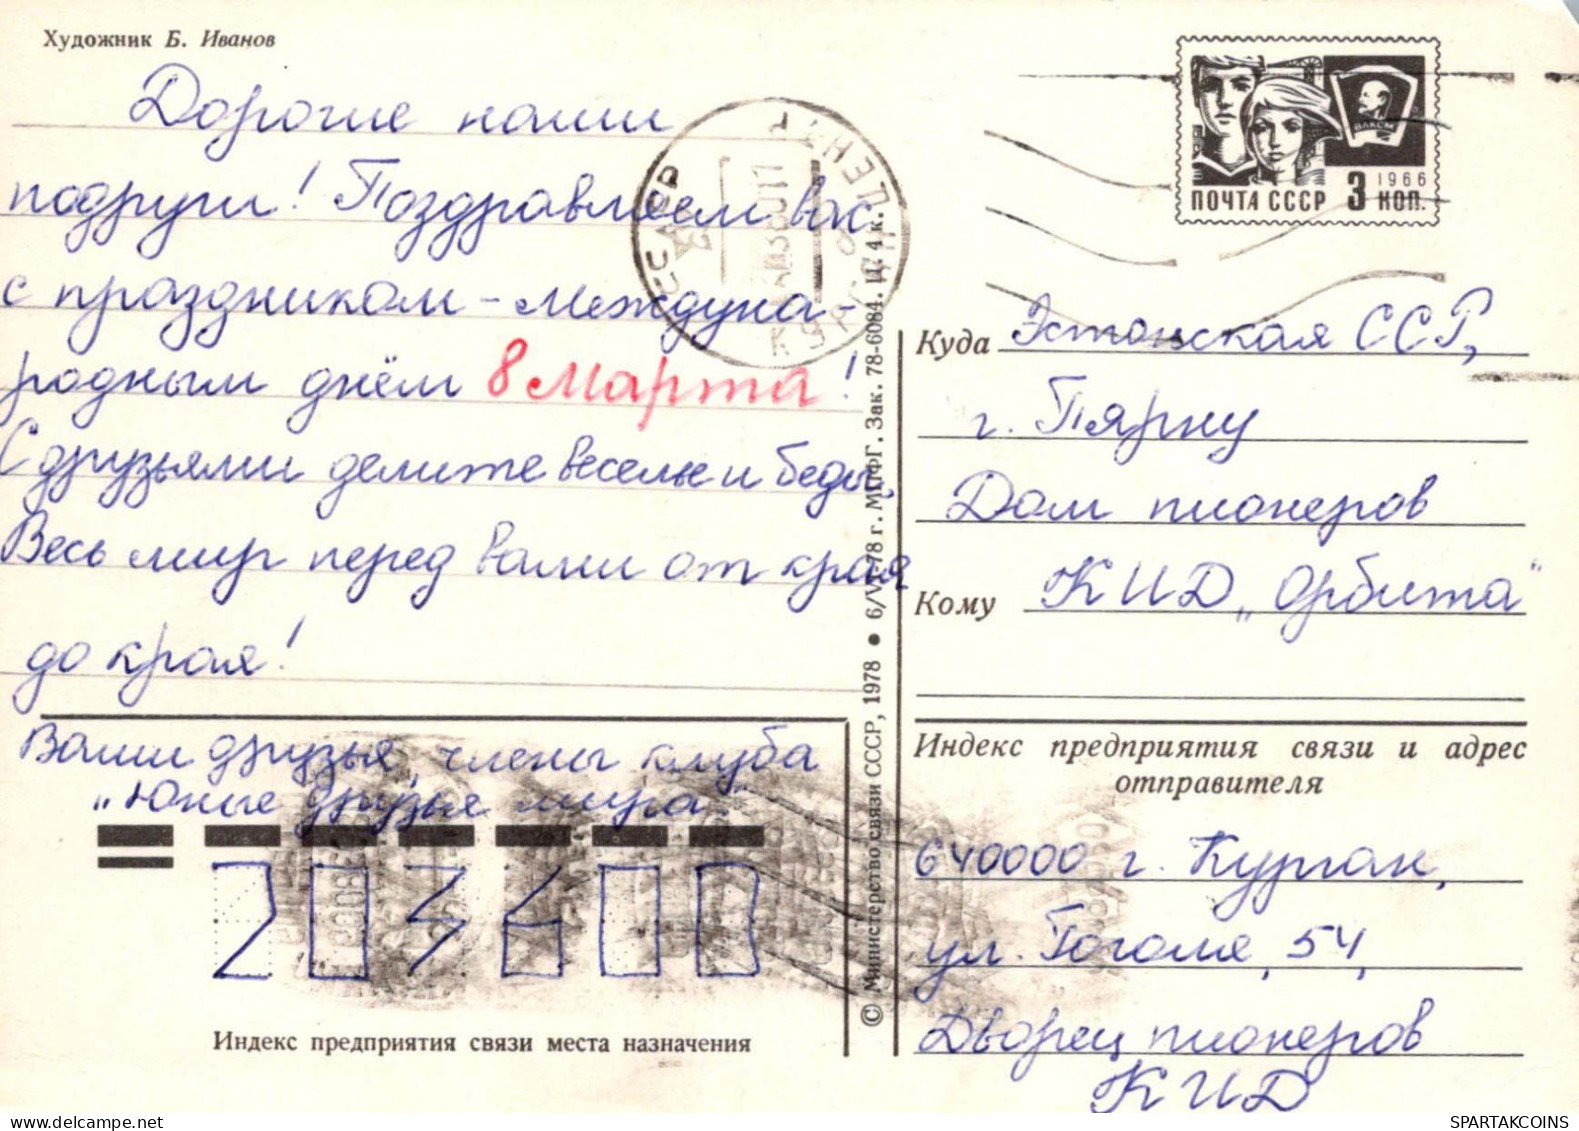 Художник Б. Иванов
Дорогие наши
подруги! Поздравляем вас
с праздником - Междуна-
родным днём 8 Марта!
С друзьями делите веселье и беды,
Весь мир перед вами от края
до края!
Ваши друзья, члены клуба
"Юные друзья мира."
203600
Индекс предприятия связи места назначения
© Министерство связи СССР, 1978 • 6/VI-78 г. МПФГ. Зак. 78-6084. Ц. 4 к.
ПОЧТА СССР 3 КОП.
1966
ВЛКСМ
СССР
КУРГАН
Куда Эстонская ССР,
г. Пярну
Дом пионеров
Кому КИД „Орбита"
Индекс предприятия связи и адрес
отправителя
640000 г. Курган,
ул. Гоголя, 54,
Дворец пионеров
КИД
SPARTAKCOINS
https://www.delcampe.net